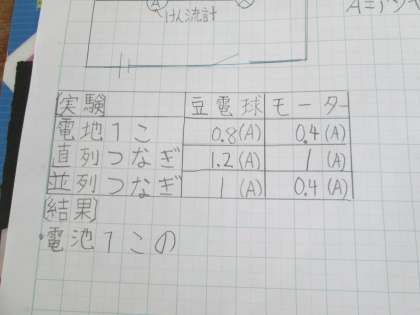 A
けん流計
[実験] 豆電球 モーター
電地1こ 0.8(A) 0.4(A)
直列つなぎ 1.2(A) 1(A)
並列つなぎ 1(A) 0.4(A)
[結果]
・電池1この